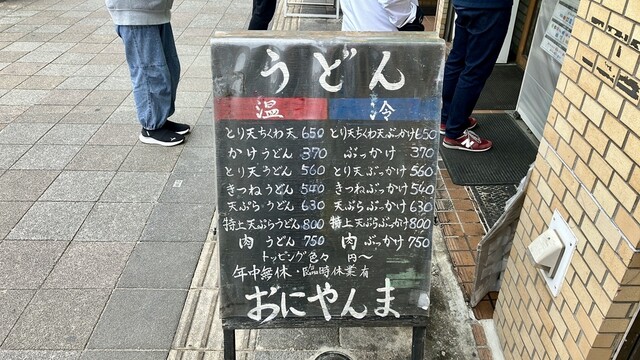 うどん
温 冷
とり天ちくわ天 650 とり天ちくわ天ぶっかけ 650
かけうどん 370 ぶっかけ 370
とり天うどん 560 とり天ぶっかけ 560
きつねうどん 540 きつねぶっかけ 540
天ぷらうどん 630 天ぷらぶっかけ 630
特上天ぷらうどん 800 特上天ぷらぶっかけ 800
肉うどん 750 肉ぶっかけ 750
トッピング色々 円〜
年中無休・臨時休業有
おにやんま